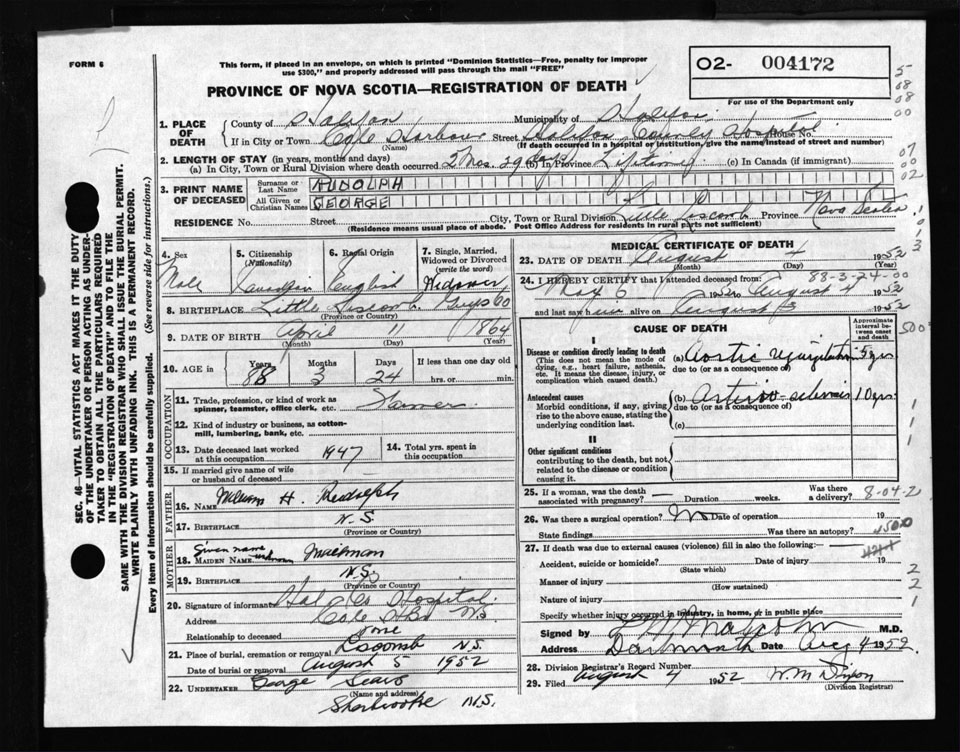 FORM 6
This form, if placed in an envelope, on which is printed "Dominion Statistics—Free, penalty for improper
use $300," and properly addressed will pass through the mail "FREE"
02- 004172
PROVINCE OF NOVA SCOTIA—REGISTRATION OF DEATH
For use of the Department only
1. PLACE OF DEATH
County of Halifax Municipality of Halifax
If in City or Town Cole Harbour Street Halifax County Hospital House No.
(Name) (If death occurred in a hospital or institution, give the name instead of street and number)
2. LENGTH OF STAY (in years, months and days)
(a) In City, Town or Rural Division where death occurred 2 Mos. 29 days (b) In Province Lifetime (c) In Canada (if immigrant)
3. PRINT NAME OF DECEASED
Surname or Last Name RUDOLPH
All Given or Christian Names GEORGE
RESIDENCE No. Street City, Town or Rural Division Little Liscomb Province Nova Scotia
(Residence means usual place of abode. Post Office Address for residents in rural parts not sufficient)
4. Sex Male
5. Citizenship (Nationality) Canadian
6. Racial Origin English
7. Single, Married, Widowed or Divorced (write the word) Widower
8. BIRTHPLACE Little Liscomb Guys Co
(Province or Country)
9. DATE OF BIRTH April 11 1864
(Month) (Day) (Year)
10. AGE in Years 88 Months 3 Days 24 If less than one day old hrs. or min.
OCCUPATION
11. Trade, profession, or kind of work as spinner, teamster, office clerk, etc.
12. Kind of industry or business, as cotton-mill, lumbering, bank, etc.
13. Date deceased last worked at this occupation 1947
14. Total yrs. spent in this occupation
15. If married give name of wife or husband of deceased
FATHER
16. NAME William H. Rudolph
17. BIRTHPLACE N.S.
(Province or Country)
MOTHER
18. MAIDEN NAME Given name unknown Mailman
19. BIRTHPLACE N.S.
(Province or Country)
20. Signature of informant Hal Co Hospital
Address Cole Hbr N.S.
Relationship to deceased None
21. Place of burial, cremation or removal Liscomb N.S.
Date of burial or removal August 5 1952
22. UNDERTAKER George Sears
(Name and address)
Sherbrooke N.S.
MEDICAL CERTIFICATE OF DEATH
23. DATE OF DEATH August 4 1952
(Month) (Day)
88-3-24-00
24. I HEREBY CERTIFY that I attended deceased from:
May 6 1952 to August 4 1952
and last saw him alive on August 3 1952
CAUSE OF DEATH
Approximate interval between onset and death
I
Disease or condition directly leading to death (a) Aortic regurgitation 5 yrs
(This does not mean the mode of dying, e.g., heart failure, asthenia, etc. It means the disease, injury, or complication which caused death.)
due to (or as a consequence of)
Antecedent causes (b) Arterio-sclerosis 10 yrs.
Morbid conditions, if any, giving rise to the above cause, stating the underlying condition last.
due to (or as a consequence of)
(c)
II
Other significant conditions
contributing to the death, but not related to the disease or condition causing it.
25. If a woman, was the death associated with pregnancy? Duration weeks. Was there a delivery? 8-04-2
26. Was there a surgical operation? No Date of operation 19
State findings Was there an autopsy?
4500
27. If death was due to external causes (violence) fill in also the following:—
Accident, suicide or homicide? Date of injury 19
(State which)
Manner of injury
(How sustained)
Nature of injury
Specify whether injury occurred in industry, in home, or in public place
Signed by Malcolm M.D.
Address Dartmouth Date Aug 4 1952.
28. Division Registrar's Record Number
29. Filed August 4 1952 W. M. Dixon
(Division Registrar)
SEC. 46—VITAL STATISTICS ACT MAKES IT THE DUTY
OF THE UNDERTAKER OR PERSON ACTING AS UNDER-
TAKER TO OBTAIN ALL THE PARTICULARS REQUIRED
IN THE "REGISTRATION OF DEATH" AND TO FILE THE
SAME WITH THE DIVISION REGISTRAR WHO SHALL ISSUE THE BURIAL PERMIT.
WRITE PLAINLY WITH UNFADING INK. THIS IS A PERMANENT RECORD.
Every item of information should be carefully supplied. (See reverse side for instructions.)